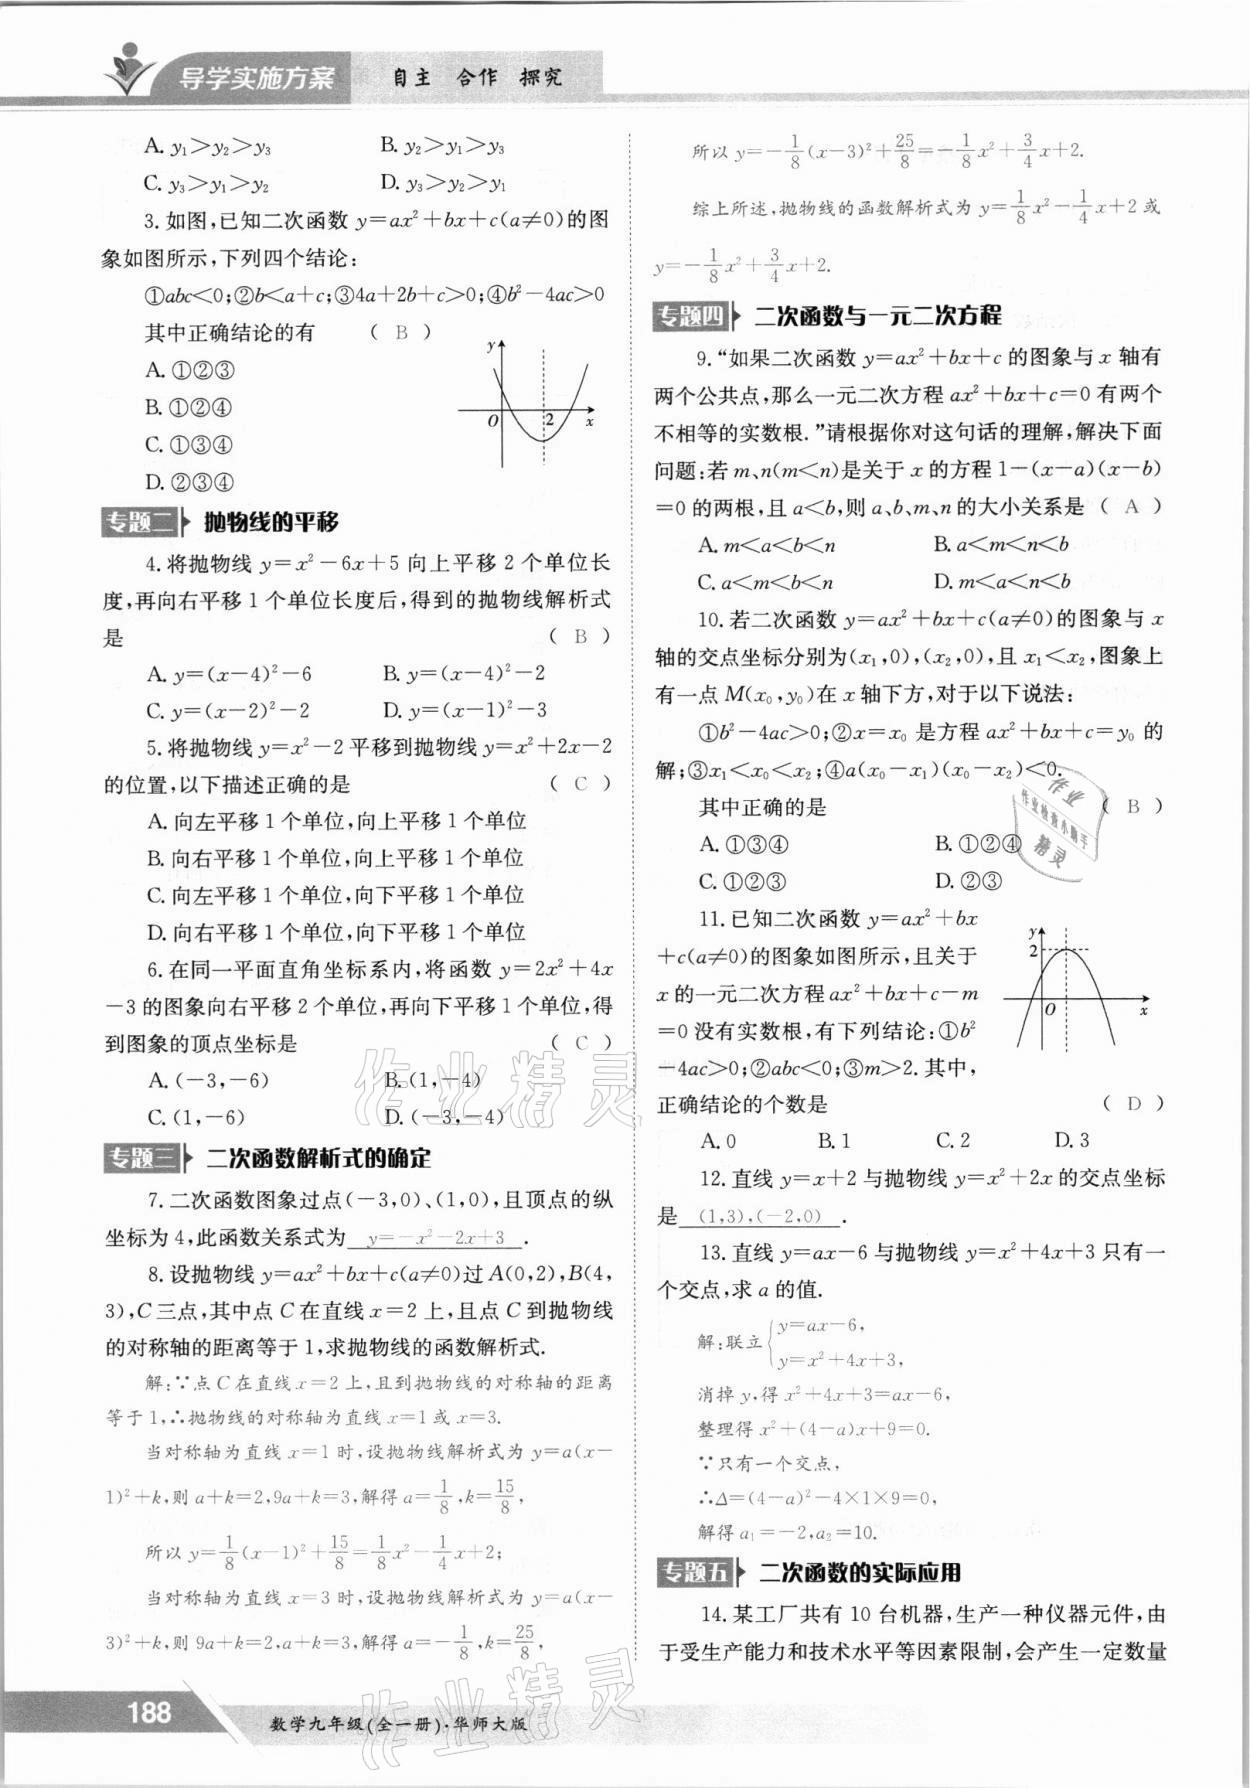 导学实施方案
自主 合作 探究
A. y₁＞y₂＞y₃ B. y₂＞y₁＞y₃
C. y₃＞y₁＞y₂ D. y₃＞y₂＞y₁
3. 如图,已知二次函数 y=ax²+bx+c(a≠0)的图
象如图所示,下列四个结论:
①abc<0;②b<a+c;③4a+2b+c>0;④b²-4ac>0
其中正确结论的有 ( B )
A. ①②③
B. ①②④
C. ①③④
D. ②③④
y
O 2 x
专题二 抛物线的平移
4. 将抛物线 y=x²-6x+5 向上平移 2 个单位长
度,再向右平移 1 个单位长度后,得到的抛物线解析式
是 ( B )
A. y=(x-4)²-6 B. y=(x-4)²-2
C. y=(x-2)²-2 D. y=(x-1)²-3
5. 将抛物线 y=x²-2 平移到抛物线 y=x²+2x-2
的位置,以下描述正确的是 ( C )
A. 向左平移 1 个单位,向上平移 1 个单位
B. 向右平移 1 个单位,向上平移 1 个单位
C. 向左平移 1 个单位,向下平移 1 个单位
D. 向右平移 1 个单位,向下平移 1 个单位
6. 在同一平面直角坐标系内,将函数 y=2x²+4x
-3 的图象向右平移 2 个单位,再向下平移 1 个单位,得
到图象的顶点坐标是 ( C )
A. (-3,-6) B. (1,-4)
C. (1,-6) D. (-3,-4)
专题三 二次函数解析式的确定
7. 二次函数图象过点(-3,0)、(1,0),且顶点的纵
坐标为 4,此函数关系式为 y=-x²-2x+3 .
8. 设抛物线 y=ax²+bx+c(a≠0)过 A(0,2),B(4,
3),C 三点,其中点 C 在直线 x=2 上,且点 C 到抛物线
的对称轴的距离等于 1,求抛物线的函数解析式.
解:∵点 C 在直线 x=2 上,且到抛物线的对称轴的距离
等于 1,∴抛物线的对称轴为直线 x=1 或 x=3.
当对称轴为直线 x=1 时,设抛物线解析式为 y=a(x-
1)²+k,则 a+k=2,9a+k=3,解得 a=1/8,k=15/8,
所以 y=1/8(x-1)²+15/8=1/8x²-1/4x+2;
当对称轴为直线 x=3 时,设抛物线解析式为 y=a(x-
3)²+k,则 9a+k=2,a+k=3,解得 a=-1/8,k=25/8,
所以 y=-1/8(x-3)²+25/8=-1/8x²+3/4x+2.
综上所述,抛物线的函数解析式为 y=1/8x²-1/4x+2 或
y=-1/8x²+3/4x+2.
专题四 二次函数与一元二次方程
9. “如果二次函数 y=ax²+bx+c 的图象与 x 轴有
两个公共点,那么一元二次方程 ax²+bx+c=0 有两个
不相等的实数根.”请根据你对这句话的理解,解决下面
问题:若 m、n(m<n)是关于 x 的方程 1-(x-a)(x-b)
=0 的两根,且 a<b,则 a、b、m、n 的大小关系是 ( A )
A. m<a<b<n B. a<m<n<b
C. a<m<b<n D. m<a<n<b
10. 若二次函数 y=ax²+bx+c(a≠0)的图象与 x
轴的交点坐标分别为(x₁,0),(x₂,0),且 x₁<x₂,图象上
有一点 M(x₀,y₀)在 x 轴下方,对于以下说法:
①b²-4ac>0;②x=x₀ 是方程 ax²+bx+c=y₀ 的
解;③x₁<x₀<x₂;④a(x₀-x₁)(x₀-x₂)<0.
其中正确的是 ( B )
A. ①③④ B. ①②④
C. ①②③ D. ②③
作业
作业检查小助手
精灵
11. 已知二次函数 y=ax²+bx
+c(a≠0)的图象如图所示,且关于
x 的一元二次方程 ax²+bx+c-m
=0 没有实数根,有下列结论:①b²
-4ac>0;②abc<0;③m>2. 其中,
正确结论的个数是 ( D )
A. 0 B. 1 C. 2 D. 3
y
2
O x
12. 直线 y=x+2 与抛物线 y=x²+2x 的交点坐标
是 (1,3),(-2,0) .
13. 直线 y=ax-6 与抛物线 y=x²+4x+3 只有一
个交点,求 a 的值.
解:联立{y=ax-6,
y=x²+4x+3,
消掉 y,得 x²+4x+3=ax-6,
整理得 x²+(4-a)x+9=0.
∵只有一个交点,
∴Δ=(4-a)²-4×1×9=0,
解得 a₁=-2,a₂=10.
专题五 二次函数的实际应用
14. 某工厂共有 10 台机器,生产一种仪器元件,由
于受生产能力和技术水平等因素限制,会产生一定数量
作业精灵
作业精灵
188
数学九年级(全一册)·华师大版